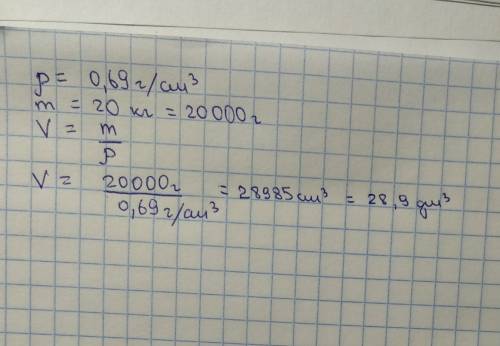 ρ = 0,69 г/см³
m = 20 кг = 20000 г
V = m/ρ
V = 20000 г / 0,69 г/см³ = 28985 см³ = 28,9 дм³